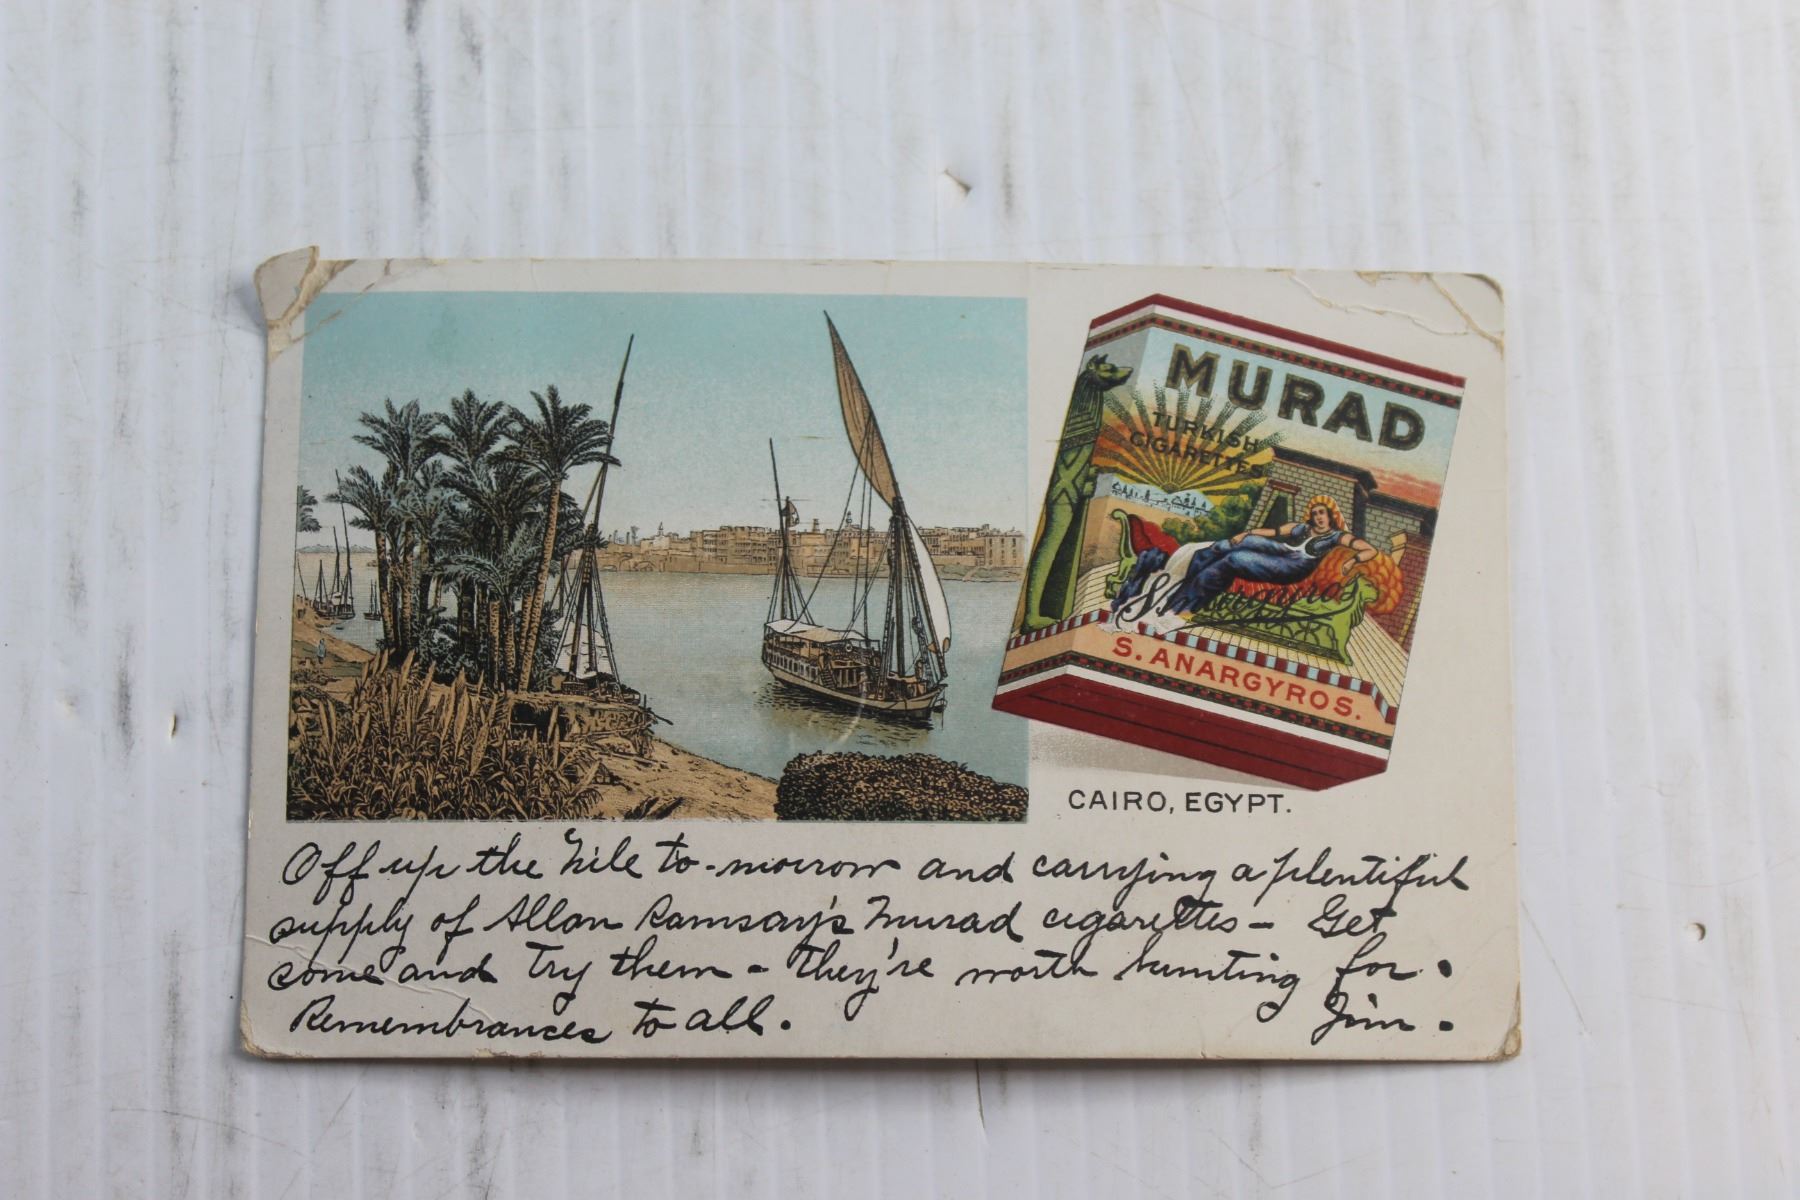 MURAD
TURKISH
CIGARETTES
S. Anargyros
S. ANARGYROS.
CAIRO, EGYPT.
Off up the Nile to-morrow and carrying a plentiful
supply of Allan Ramsay's Murad cigarettes – Get
some and try them – They're worth hunting for.
Remembrances to all. Jim.